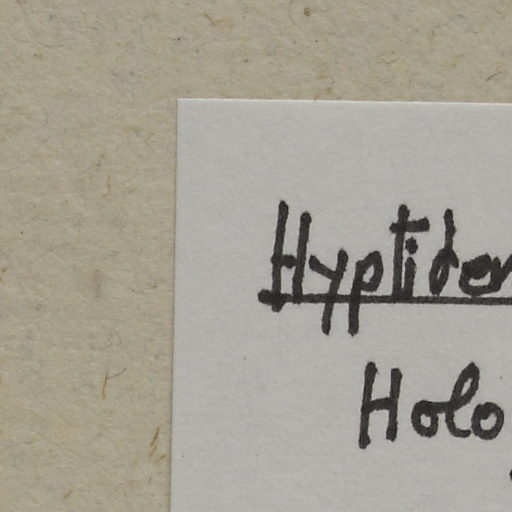 Hyptiden
Holo